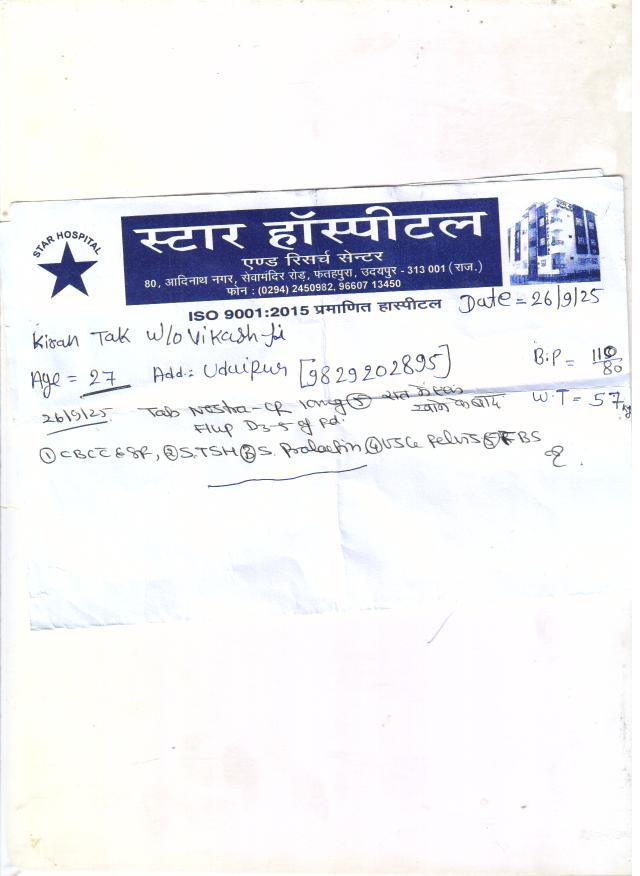 STAR HOSPITAL
स्टार हॉस्पीटल
एण्ड रिसर्च सेन्टर
80, आदिनाथ नगर, सेवामंदिर रोड़, फतहपुरा, उदयपुर - 313 001 (राज.)
फोन : (0294) 2450982, 96607 13450
ISO 9001:2015 प्रमाणित हास्पीटल
Date = 26/9/25
Kiran Tak W/o Vikash Ji
Age = 27 Add.: Udaipur [9829202895] B.P = 110/80
26/9/25 Tab -CR 10mg ⑤ रात को एक खाने के बाद W.T = 57 kg
F/up D3-5 of Pd.
① CBC ESR, ② S.TSH ③ S. Prolactin ④ USG Pelvis ⑤ FBS